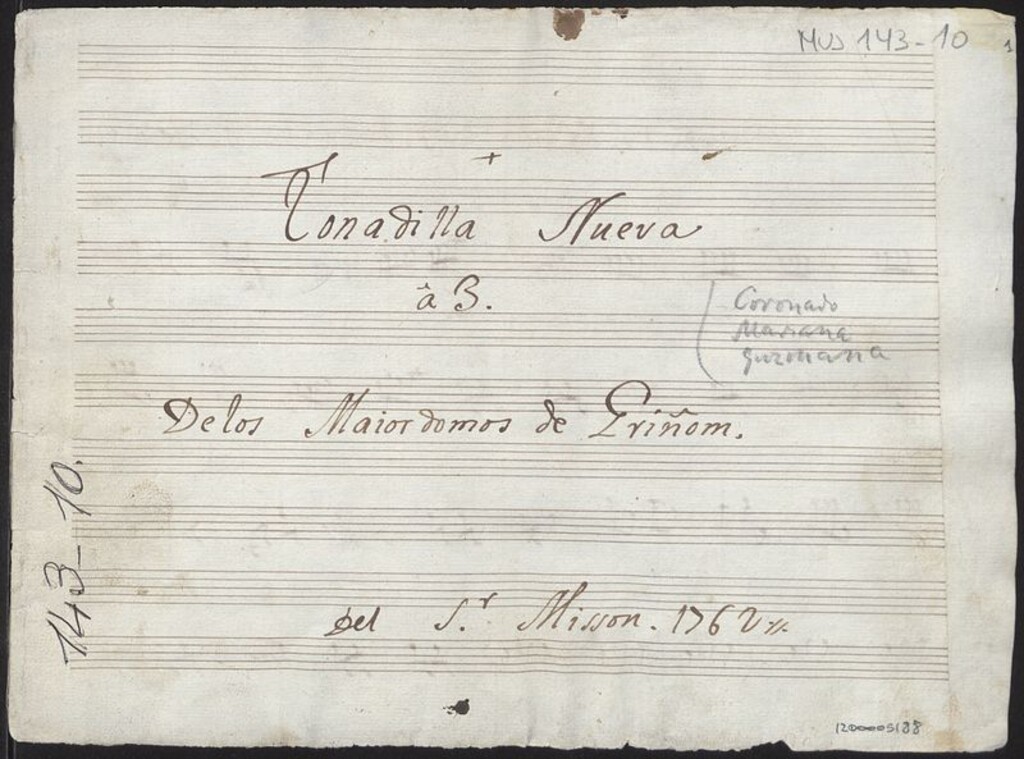 MUS 143-10
1
+
Tonadilla Nueva
â 3.
Coronado
Mariana
guzmana
Delos Maiordomos de Griñom.
143-10.
Del S.r Misson. 1762
1200005188